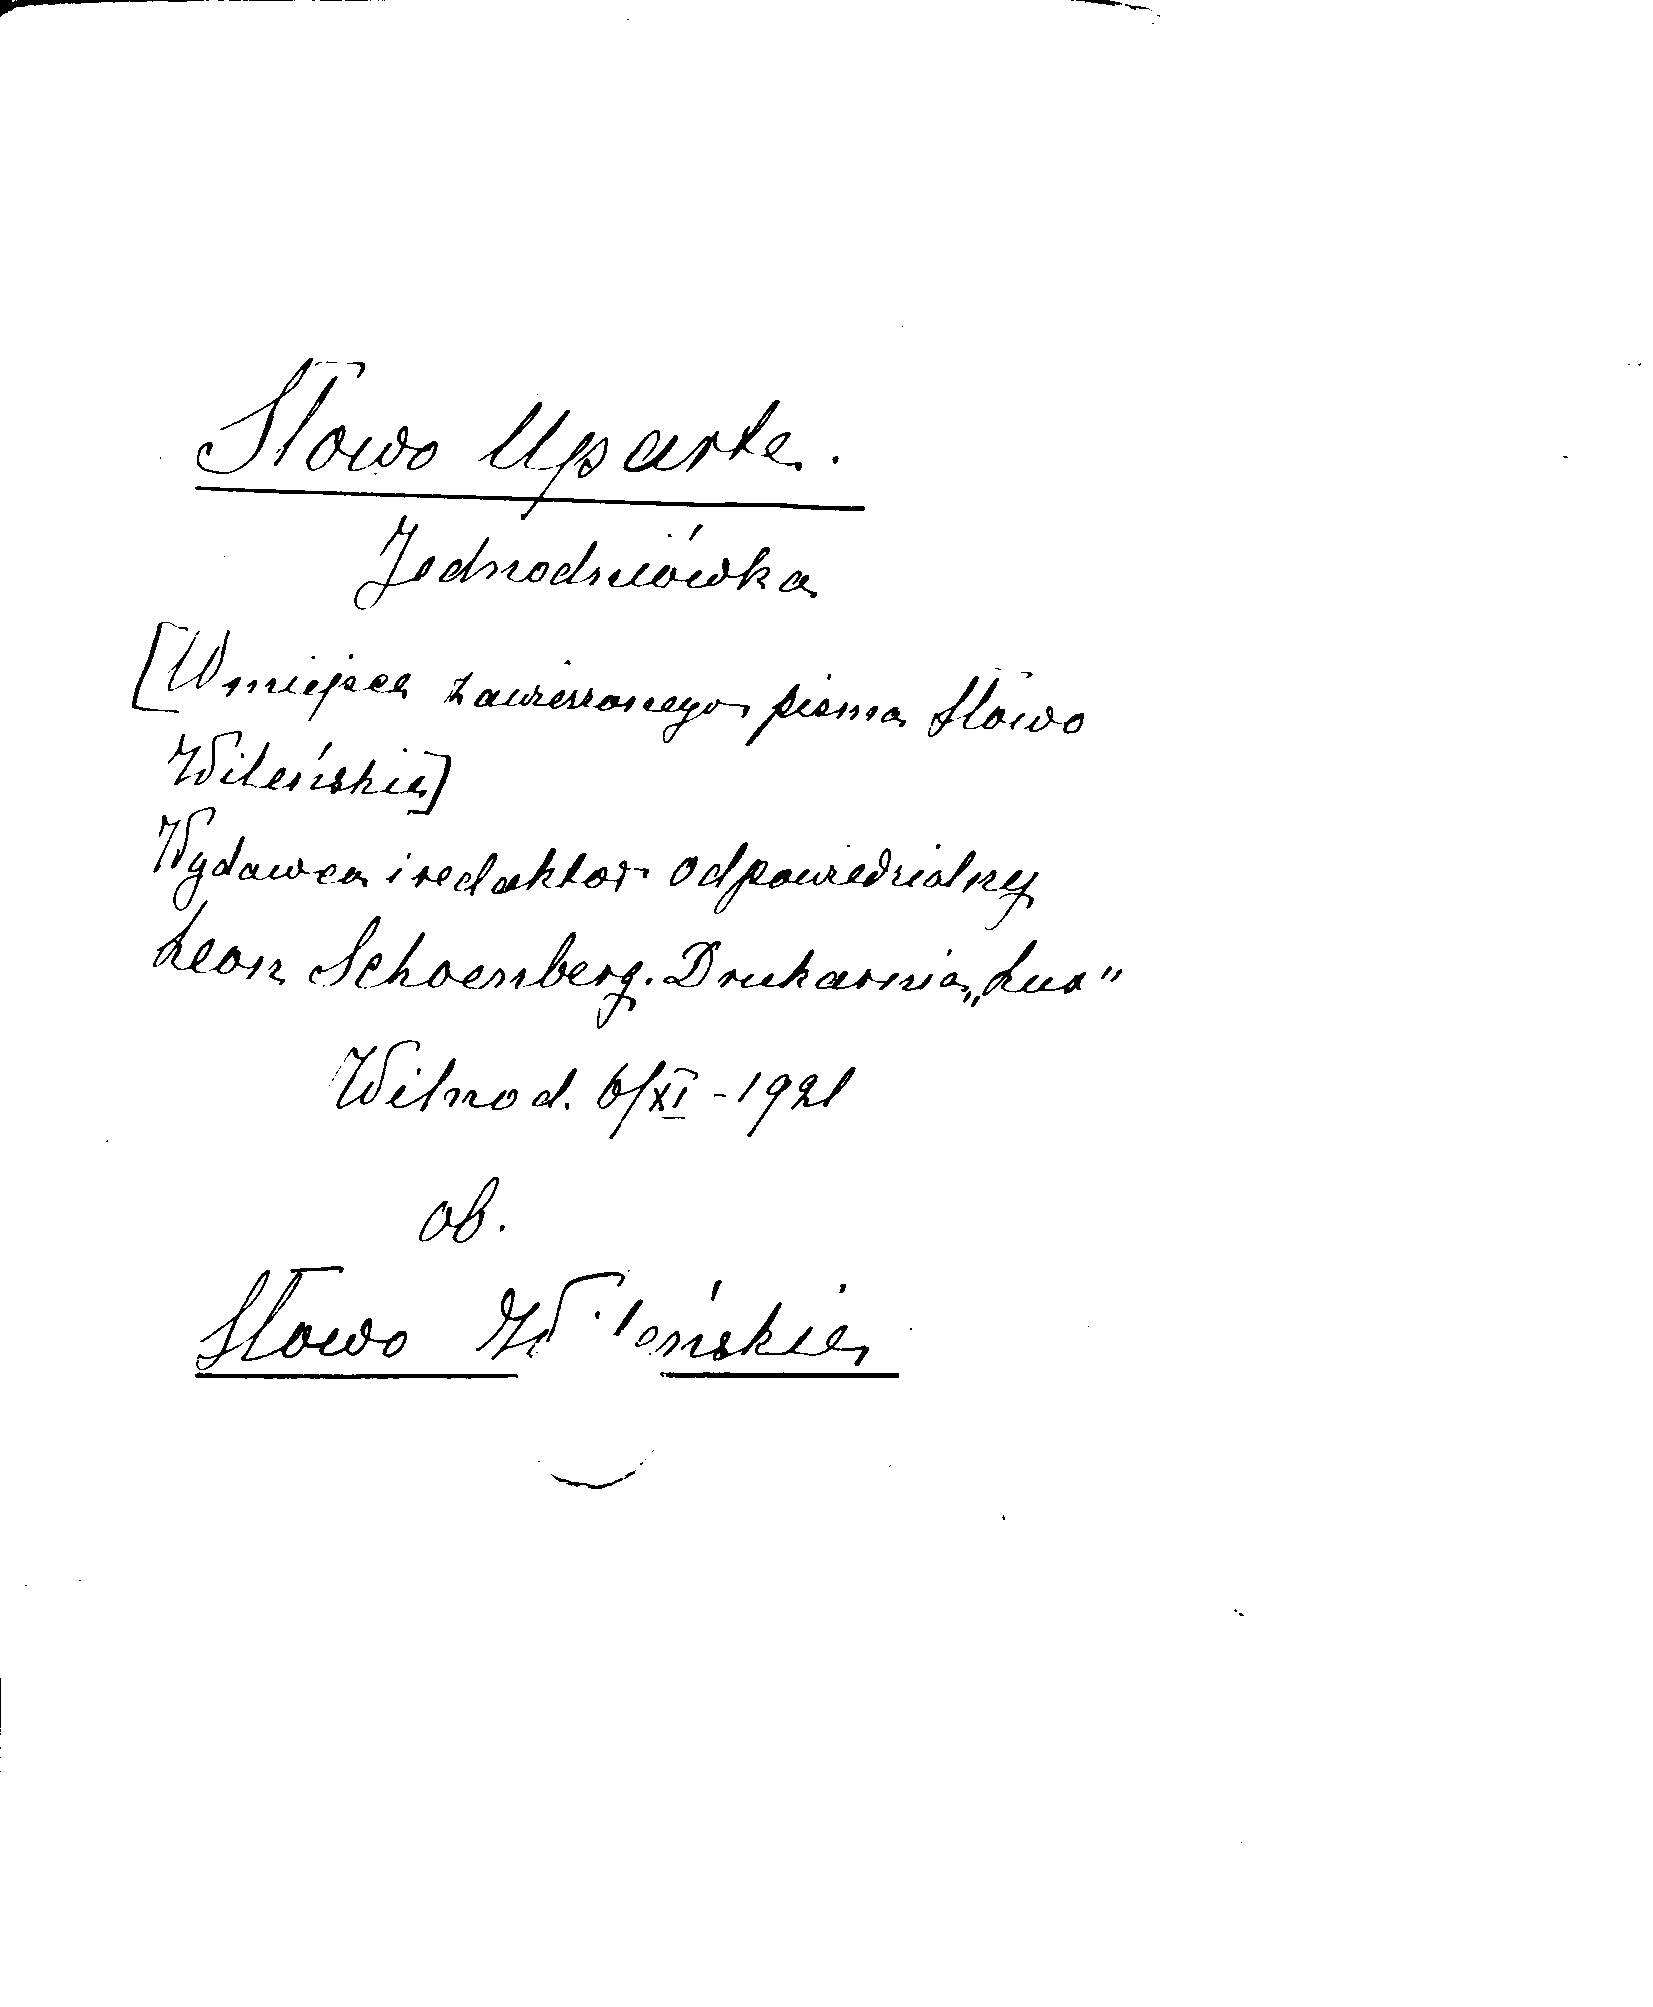 Słowo Uparte.
Jednodniówka
[W miejsce zawieszonego pisma Słowo
Wileńskie]
Wydawca i redaktor odpowiedzialny
Leon Schoenberg. Drukarnia „Lux”
Wilno d. 6/XI - 1921
ob.
Słowo Wileńskie